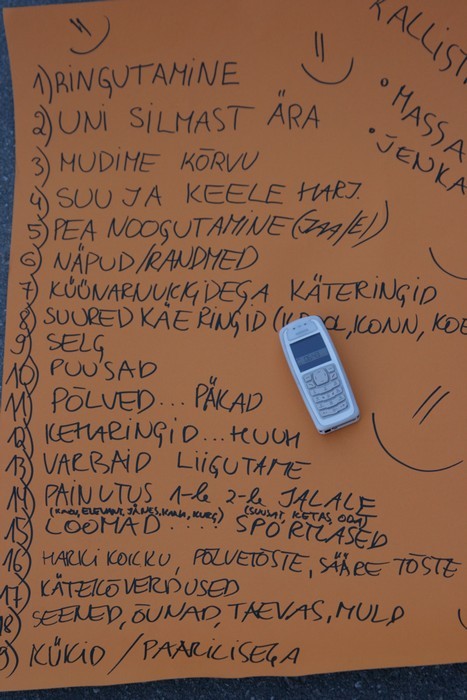 KALLIST
• MASSA
• JENKA
1) RINGUTAMINE
2) UNI SILMAST ÄRA
3) MUDIME KÕRVU
4) SUU JA KEELE HARJ.
5) PEA NOOGUTAMINE (JAA/EI)
6) NÄPUD/RANDMED
7) KÜÜNARNUKKIDEGA KÄTERINGID
8) SUURED KÄERINGID (KONN, KOE
9) SELG
10) PUUSAD
11) PÕLVED... PÄKAD
12) KEHARINGID... HUUH
13) VARBAID LIIGUTAME
14) PAINUTUS 1-le 2-le JALALE
(KARU, ELEVANT, JÄNES, KANA, KURG) (SUUSAT, KETAS, ODA)
15) LOOMAD .... SPORTLASED
16) HARKI KOKKU, PÕLVETÕSTE, SÄÄRE TÕSTE
17) KÄTEKÕVERDUSED
18) SEENED, ÕUNAD, TAEVAS, MULD
9) KÜKID / PAARILISEGA